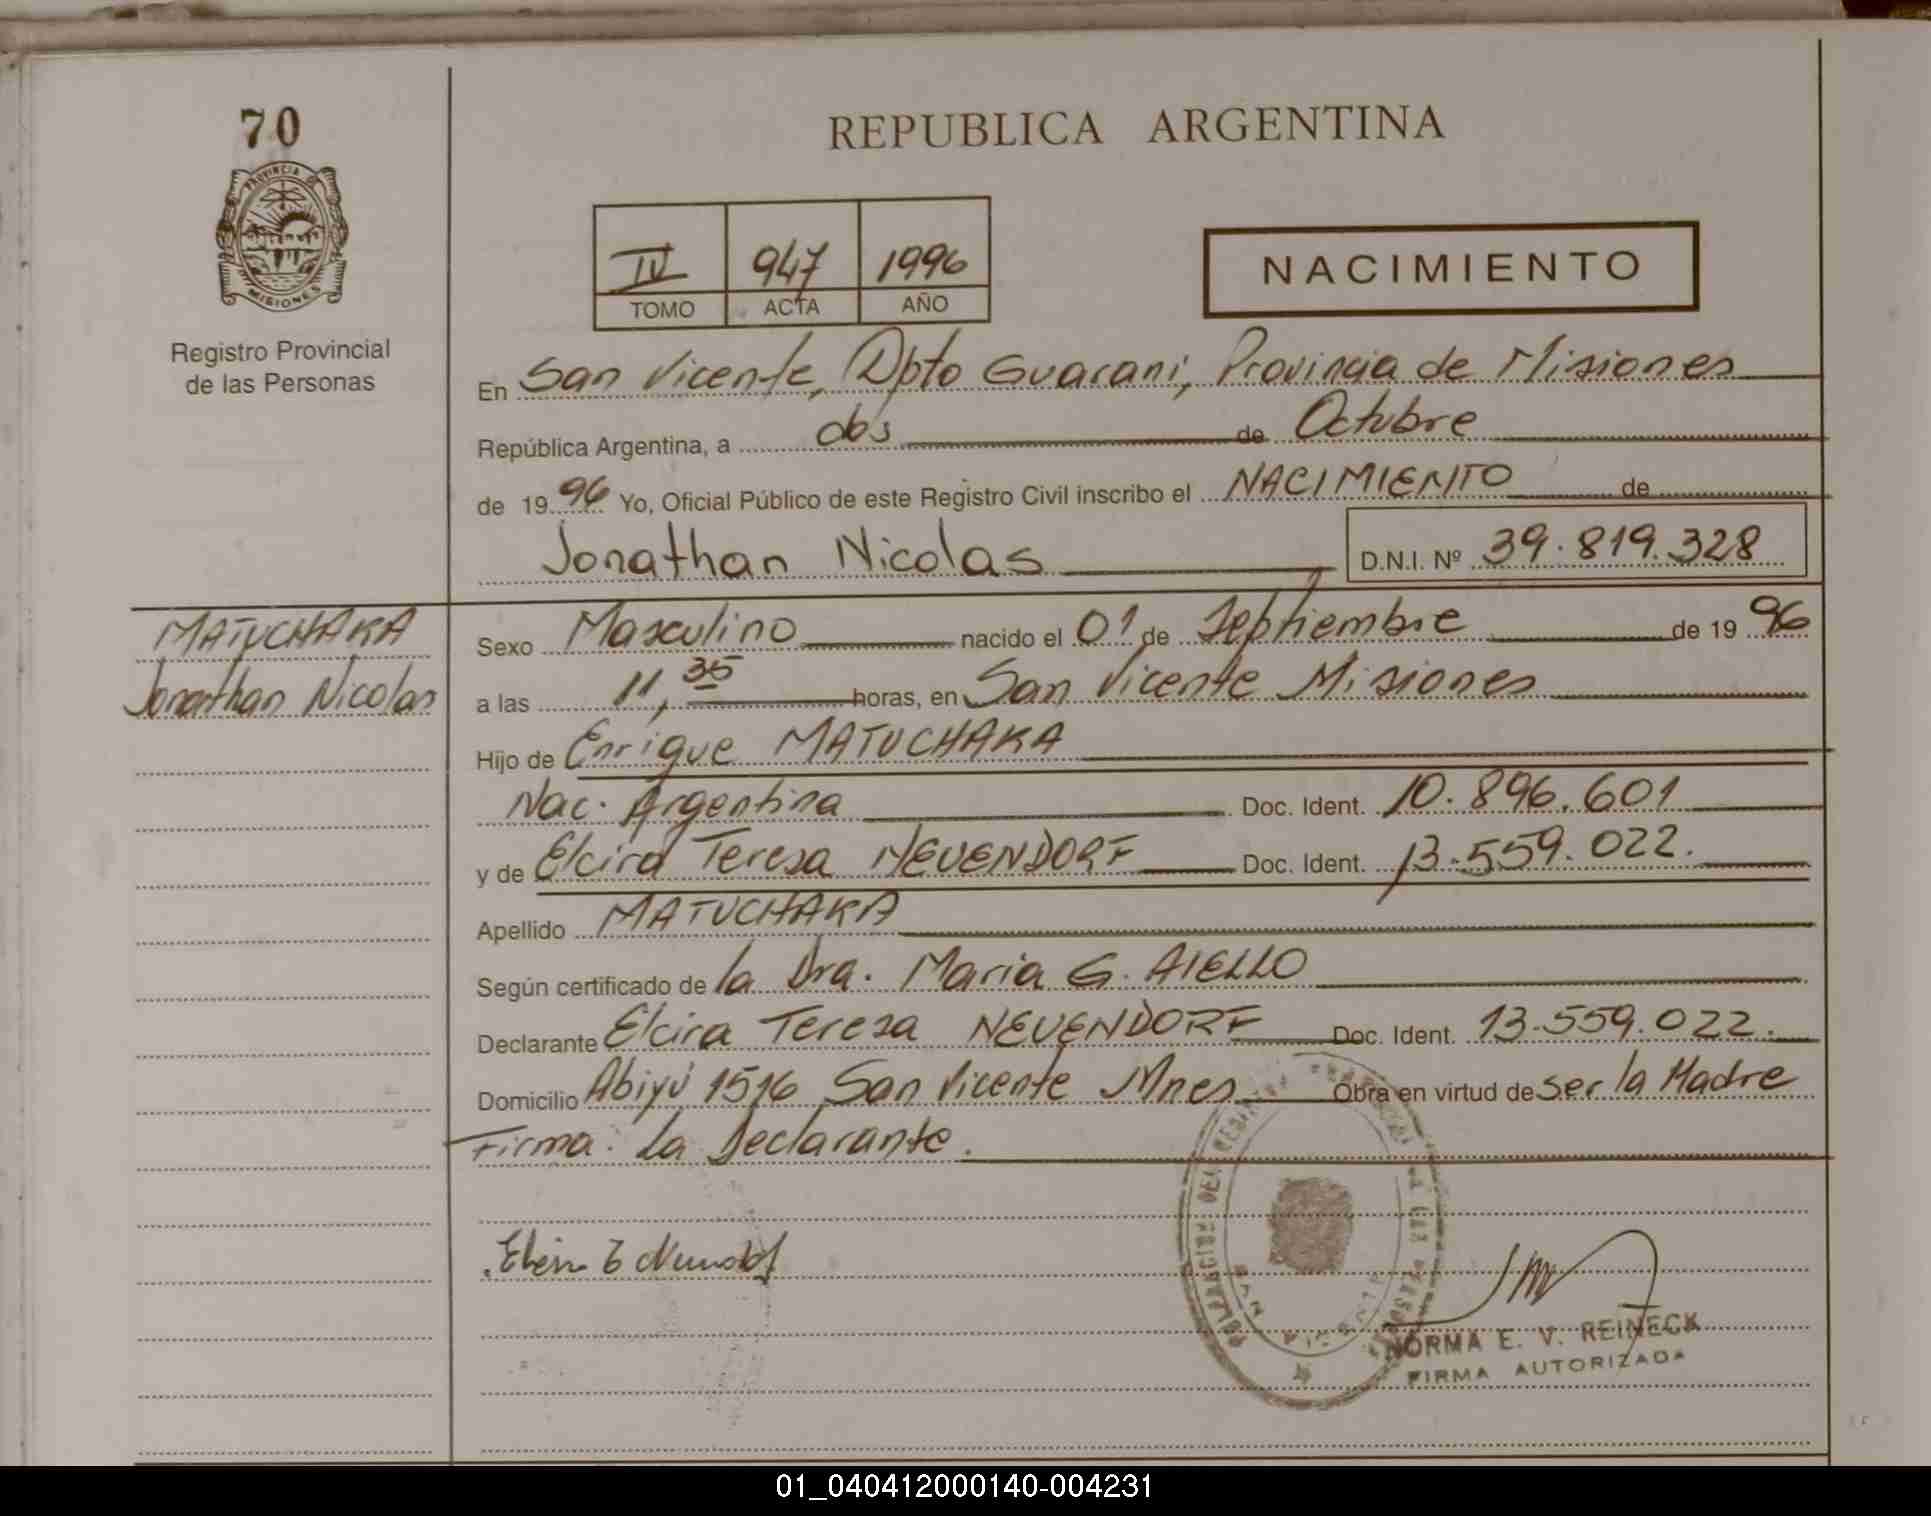 70
PROVINCIA DE
MISIONES
Registro Provincial
de las Personas
REPUBLICA ARGENTINA
IV 947 1996
TOMO ACTA AÑO
NACIMIENTO
En San Vicente, Dpto Guarani, Provincia de Misiones
República Argentina, a dos de Octubre
de 1996 Yo, Oficial Público de este Registro Civil inscribo el NACIMIENTO de
Jonathan Nicolas D.N.I. Nº 39.819.328
MATUCHAKA
Jonathan Nicolas
Sexo Masculino nacido el 01 de Septiembre de 1996
a las 11,35 horas, en San Vicente Misiones
Hijo de Enrique MATUCHAKA
Nac. Argentina Doc. Ident. 10.896.601
y de Elcira Teresa NEUENDORF Doc. Ident. 13.559.022.
Apellido MATUCHAKA
Según certificado de la Dra. Maria G. AIELLO
Declarante Elcira Teresa NEUENDORF Doc. Ident. 13.559.022.
Domicilio Abiyú 1516 San Vicente Mnes Obra en virtud de ser la Madre
Firma: La Declarante.
SAN VICENTE
NORMA E. V. REINECK
FIRMA AUTORIZADA
01_040412000140-004231